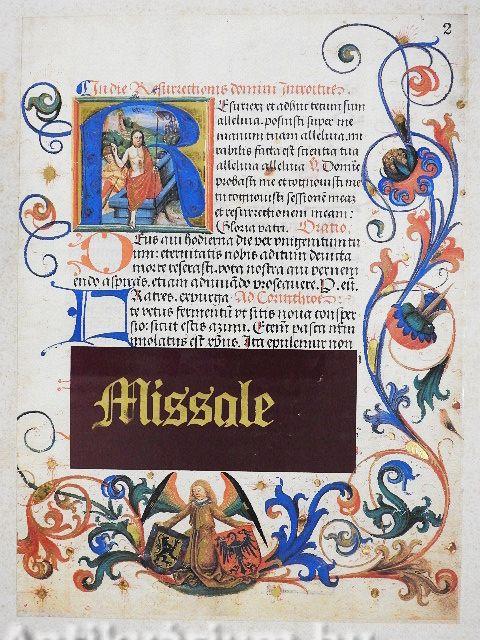 2
In die Resurrectionis domini Introitus.
Resurrexi et adhuc tecum sum
alleluia. posuisti super me
manum tuam alleluia. mi
rabilis facta est scientia tua
alleluia alleluia V. Domine
probasti me et cognovisti me
tu cognovisti sessionē meaz
et resurrectionem meam:
Gloria patri. Oratio.
Deus qui hodierna die per unigenitum tu
um: eternitatis nobis aditum devicta
morte reserasti. vota nostra que preveni
endo aspiras. etiam adiuvādo prosequere. P. eū.
Fratres. expurga Ad Corinthios:
te vetus fermentū ut sitis nova consper
sio: sicut estis azimi. Etenī pasca nrm
imolatus est xp̄us. Ita epulemur non
Missale